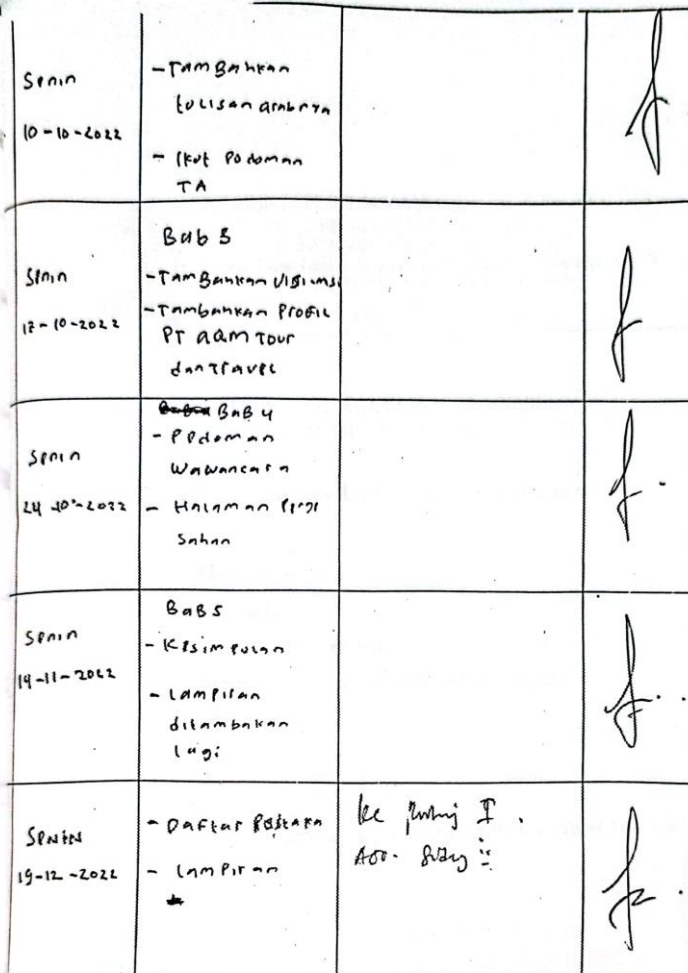 Senin
10-10-2022
- Tambahkan
tulisan arabnya
- Ikut Pedoman
TA
Senin
17-10-2022
Bab 3
- Tambahkan Visi misi
- Tambahkan Profil
PT AQM Tour
dan Travel
Senin
24-10-2022
BAB 4
- Pedoman
Wawancara
- Halaman Penge
Sahan
Senin
14-11-2022
BAB 5
- Kesimpulan
- Lampiran
ditambakan
lagi
SENIN
19-12-2022
- Daftar Pustaka
- Lampiran
ke I.
Acc.